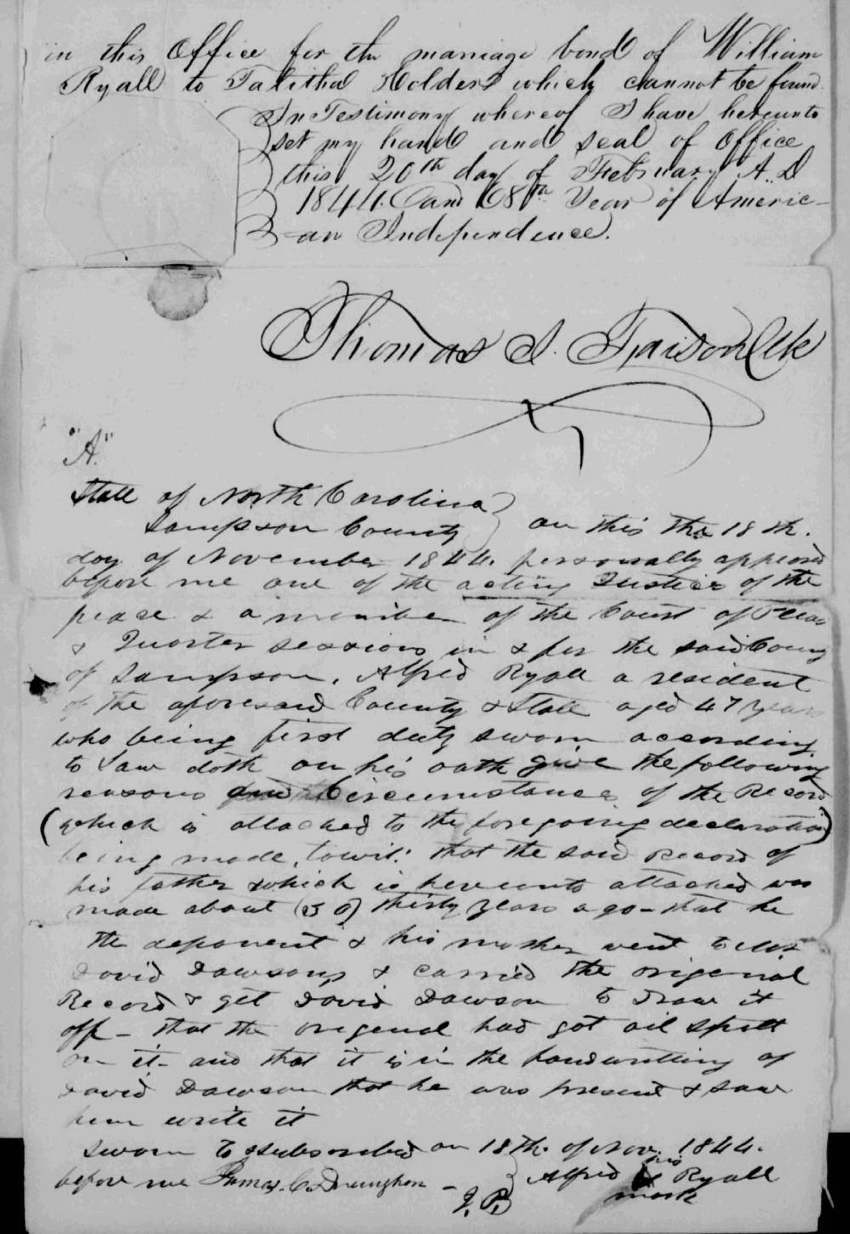 in this Office for the marriage bond of William
Ryall to Talitha Holders which cannot be found.
In Testimony whereof I have hereunto
set my hand and seal of office
this 20th day of February A.D
1844. and 68th Year of Americ-
-an Independence.
Thomas I. Faison Clk
"A"
State of North Carolina
Sampson County } on this the 18th.
day of November 1844. personally appeared
before me one of the acting Justice of the
peace & a member of the Court of Pleas
& Quarter sessions in & for the said County
of Sampson, Alfred Ryall a resident
of the aforesaid County & State aged 47 years
who being first duty sworn according
to Law doth on his oath give the following
reasons and Circumstances of the Record
(which is attached to the foregoing declaration)
being made, towit: that the said Record of
his father & which is hereunto attached was
made about (30) thirty years ago - that he
the deponent & his mother went to
David Dawsons & carried the origenial
Record & get David Dawson to Draw it
off - that the origenal had got oil spilt
on it - and that it is in the handwriting of
David Dawson that he was present & saw
him write it
Sworn to & subscribed on 18th. of Nov. 1844.
before me James C. Draughon - } Alfred his x Ryall
J. P. mark